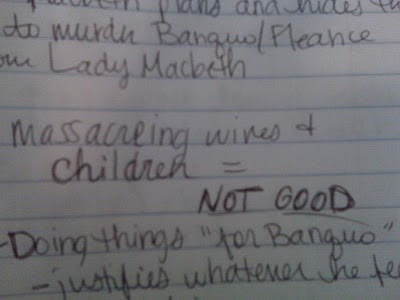 plans and hides
to murder Banquo/Fleance
Lady Macbeth
massacreing wives &
children =
NOT GOOD
-Doing things "for Banquo"
-justifies whatever he